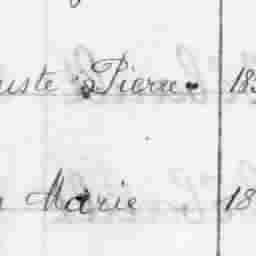 uste Pierre 18
Marie 18